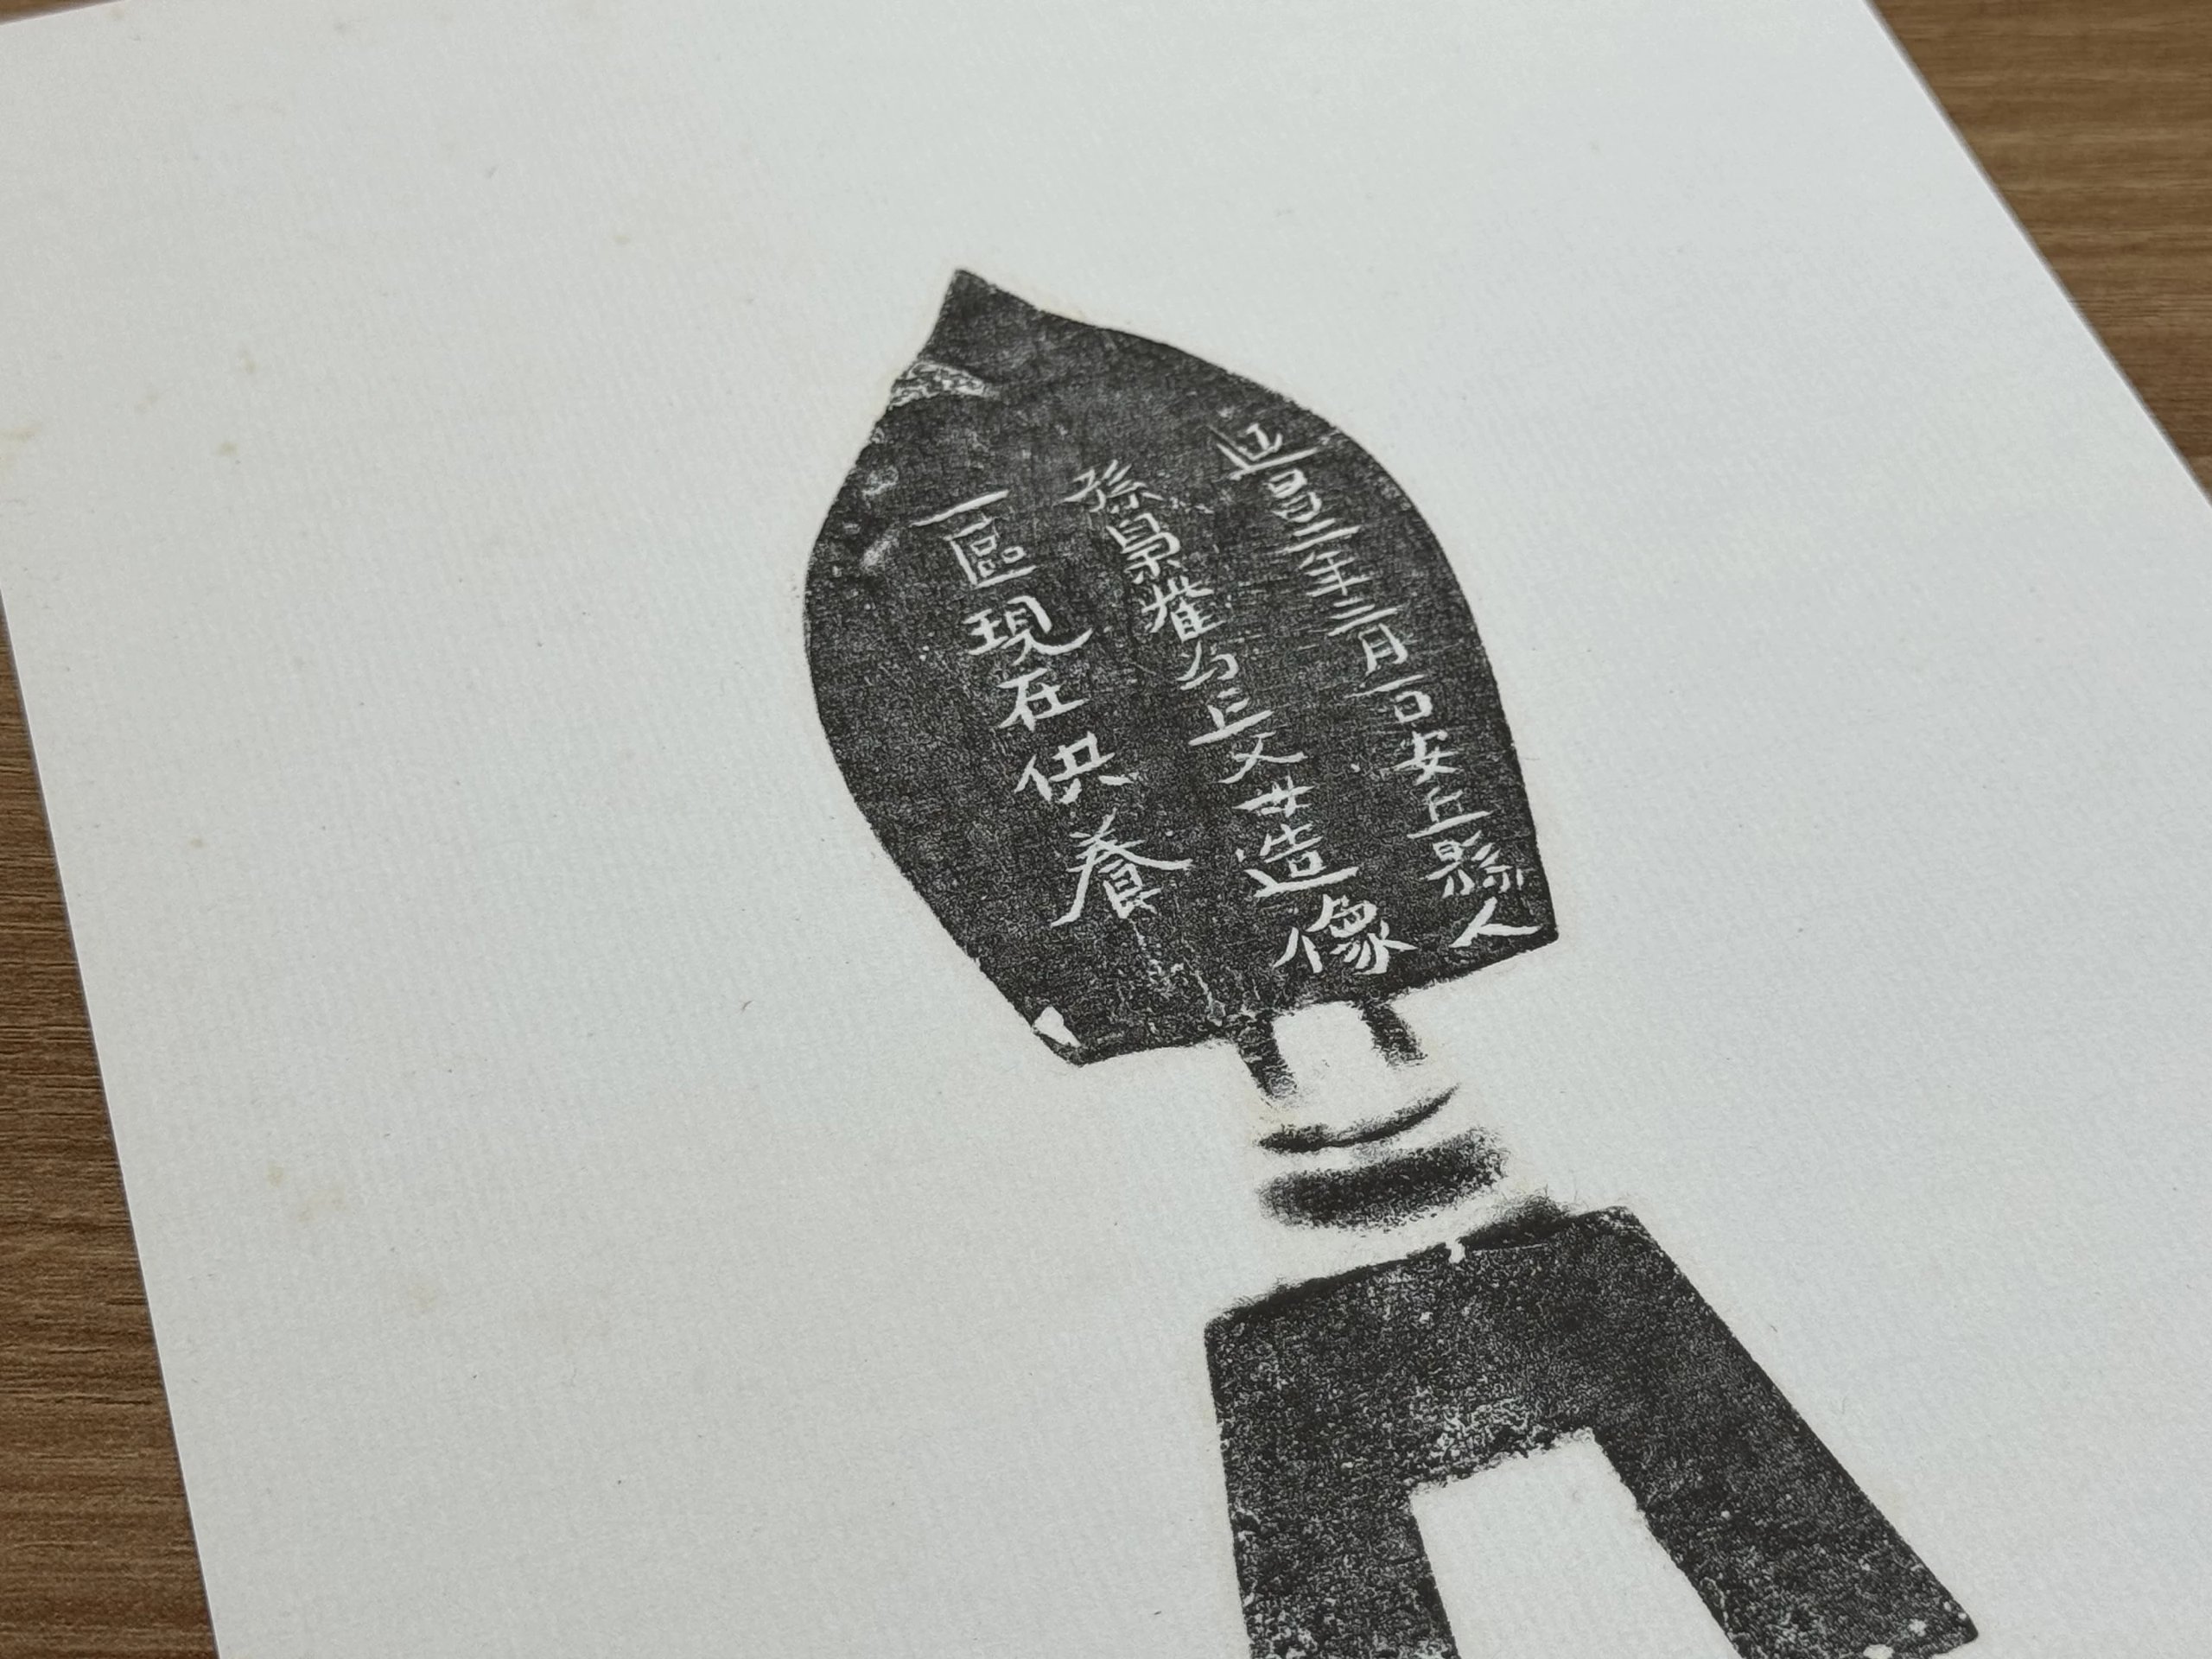 延昌三年二月一日安丘縣人
孫為亡父母造像
一區現在供養